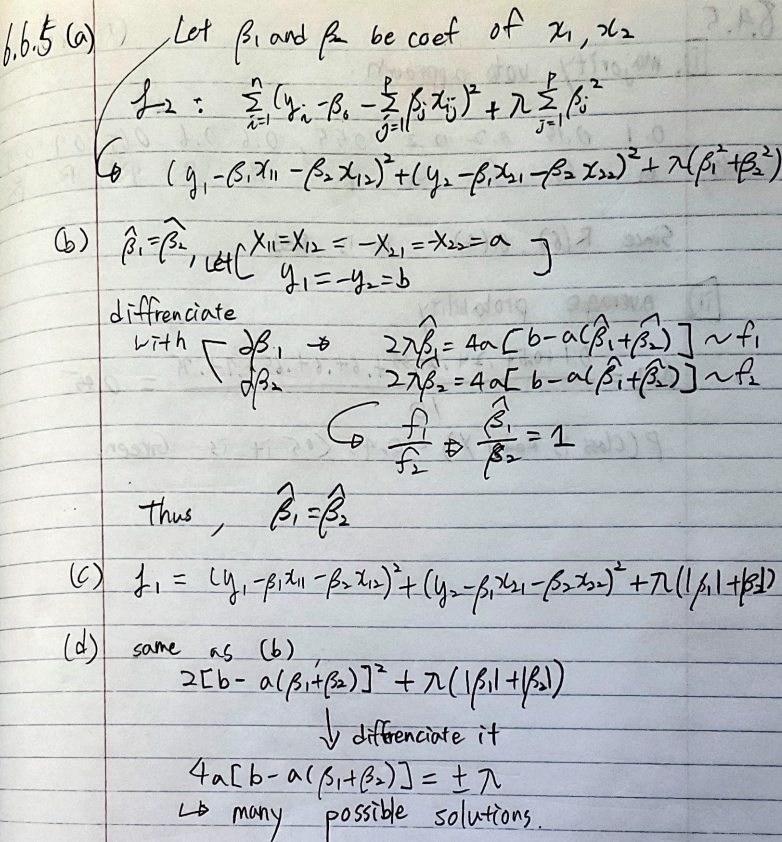 6.6.5 (a) Let β₁ and β₂ be coef of x₁, x₂
L₂ : Σⁿᵢ₌₁ (yᵢ - β₀ - Σᵖⱼ₌₁ βⱼ xᵢⱼ)² + λ Σᵖⱼ₌₁ βⱼ²
↳ (y₁ - β₁x₁₁ - β₂x₁₂)² + (y₂ - β₁x₂₁ - β₂x₂₂)² + λ(β₁² + β₂²)
(b) β̂₁ = β̂₂, Let [ x₁₁ = x₁₂ = -x₂₁ = -x₂₂ = a ]
y₁ = -y₂ = b
diffrenciate
with ∂β₁ → 2λβ̂₁ = 4a [b - a(β̂₁ + β̂₂)] ~ f₁
∂β₂ 2λβ̂₂ = 4a [b - a(β̂₁ + β̂₂)] ~ f₂
↳ f₁/f₂ ⇒ β̂₁/β̂₂ = 1
Thus, β̂₁ = β̂₂
(c) L₁ = (y₁ - β₁x₁₁ - β₂x₁₂)² + (y₂ - β₁x₂₁ - β₂x₂₂)² + λ(|β₁| + |β₂|)
(d) same as (b),
2[b - a(β₁ + β₂)]² + λ(|β₁| + |β₂|)
↓ diffrenciate it
4a[b - a(β₁ + β₂)] = ± λ
↳ many possible solutions.